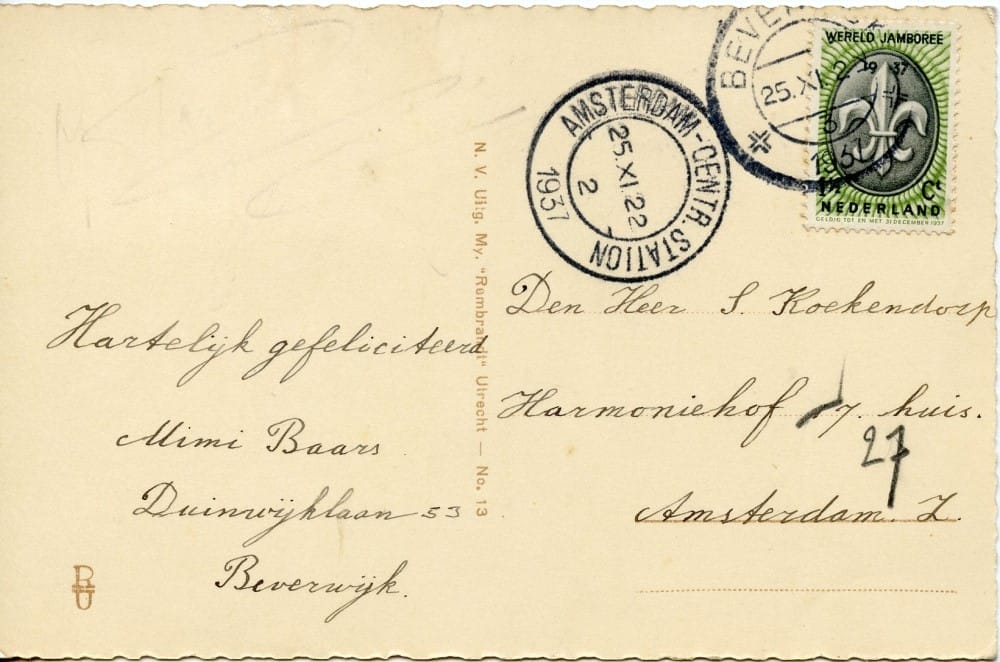 Hartelijk gefeliciteerd
Mimi Baars
Duinwijklaan 53
Beverwijk.
RU
N. V. Uitg. My. "Rembrandt" Utrecht — No. 13
AMSTERDAM-CENTR. STATION
25.XI.22
2
1937
25.XI
1937
WERELD JAMBOREE
1937
1½ Ct
NEDERLAND
GELDIG TOT EN MET 31 DECEMBER 1937
Den Heer S. Koekendorp
Harmoniehof 17. huis.
27
Amsterdam. Z.